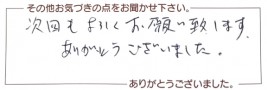 その他お気づきの点をお聞かせ下さい。
次回もよろしくお願い致します。
ありがとうございました。
ありがとうございました。